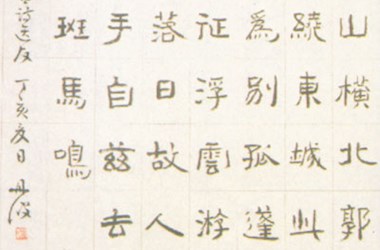 山橫北郭
繞東城此
爲別孤蓬
征浮雲游
落日故人
手自茲去
斑馬鳴
詩送友 丁亥夏日